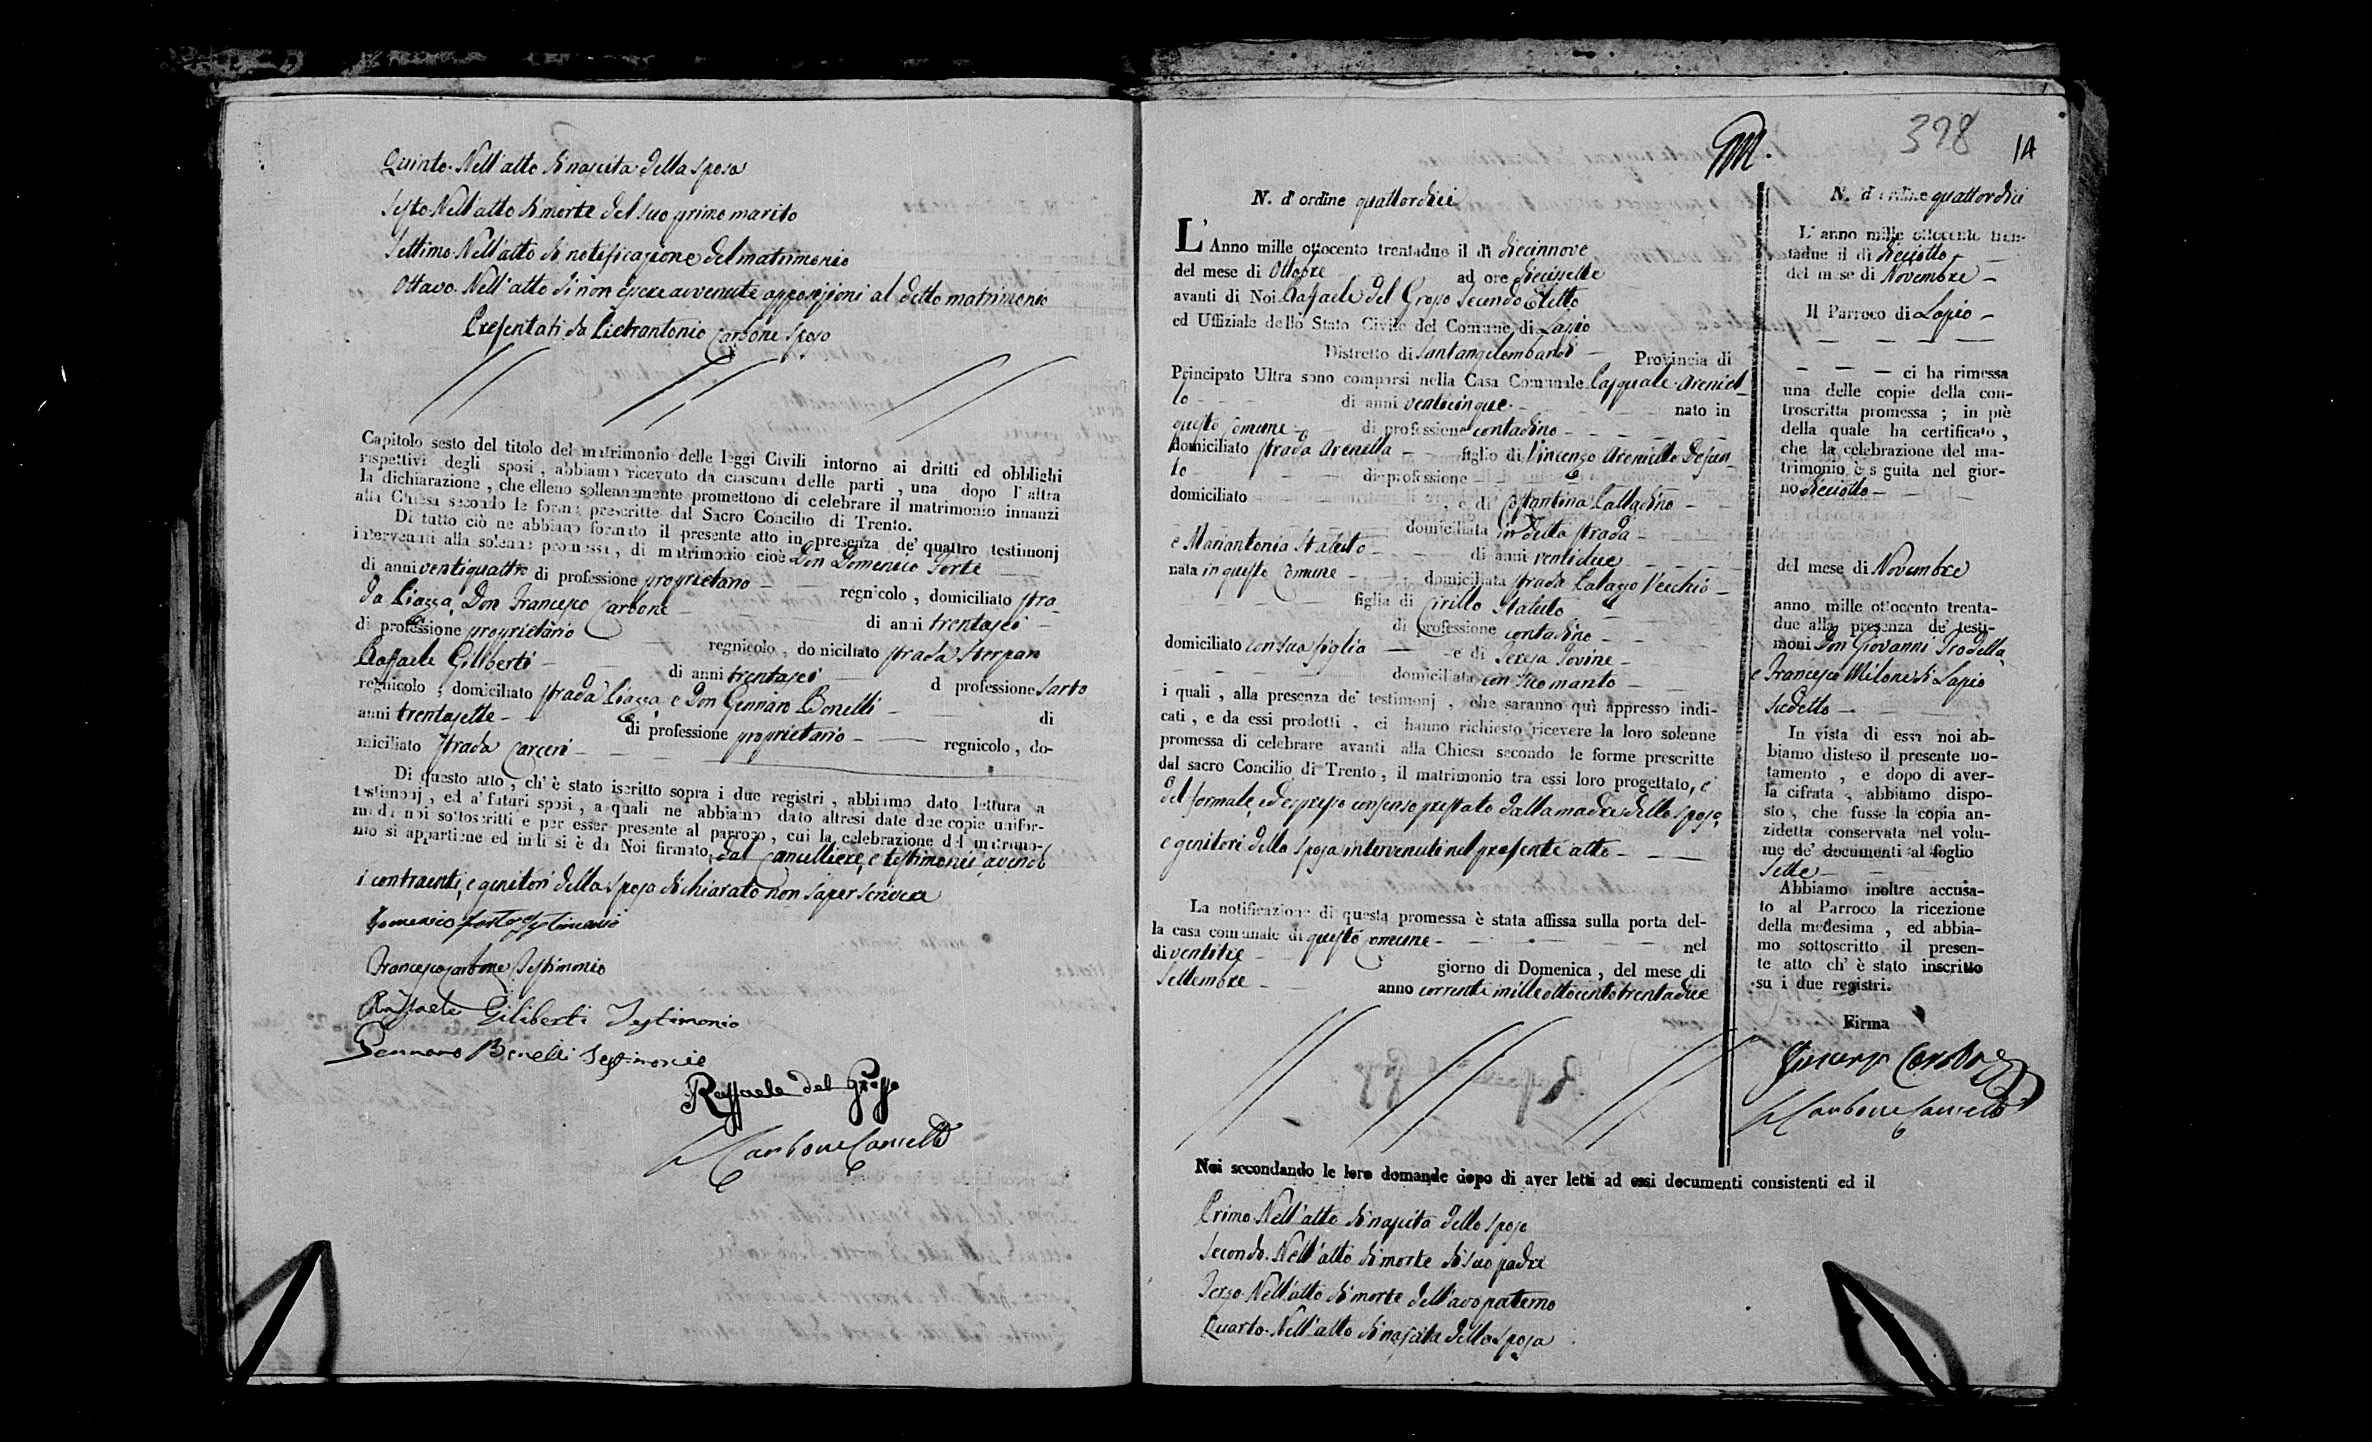 Quinto. Nell'atto di nascita della sposa
Sesto Nell'atto di morte del suo primo marito
Settimo. Nell'atto di notificazione del matrimonio
Ottavo. Nell'atto di non essere avvenute opposizioni al detto matrimonio
Presentati da Pietrantonio Carbone sposo
Capitolo sesto del titolo del matrimonio delle leggi Civili intorno ai dritti ed obblighi
rispettivi degli sposi, abbiamo ricevuto da ciascuna delle parti, una dopo l'altra
la dichiarazione, che elleno sollennemente promettono di celebrare il matrimonio innanzi
alla Chiesa secondo le forme prescritte dal Sacro Concilio di Trento.
Di tutto ciò ne abbiamo formato il presente atto in presenza de' quattro testimonj
intervenuti alla solenne promessa, di matrimonio cioè Don Domenico Forte
di anni ventiquattro di professione proprietario regnicolo, domiciliato stra-
da Piazza, Don Francesco Carbone di anni trentasei
di professione proprietario regnicolo, domiciliato strada
Raffaele Giliberti di anni trentasei d professione sarto
regnicolo, domiciliato strada Piazza e Don Gennaro Bonelli di
anni trentasette di professione proprietario regnicolo, do-
miciliato strada Carceri
Di questo atto, ch'è stato iscritto sopra i due registri, abbiamo dato lettura a
testimonj, ed a' futuri sposi, a quali ne abbiamo dato altresì date due copie unifor-
mi da noi sottoscritti e per esser presente al parroco, cui la celebrazione del matrimo-
nio si appartiene ed indi si è da Noi firmato, dal Cancelliere, e testimonii avendo
i contraenti, e genitori della sposa dichiarato non saper scrivere
Domenico Forte Testimonio
Francesco Carbone Testimonio
Raffaele Giliberti Testimonio
Gennaro Bonelli Testimonio
Raffaele del Grosso
Carbone Cancelle
M.
378
14
N. d'ordine quattordici
L'Anno mille ottocento trentadue il dì diecinnove
del mese di Ottobre ad ore diecisette
avanti di Noi Raffaele del Grosso Secondo Eletto
ed Uffiziale dello Stato Civile del Comune di Lapio
Distretto di Santangelombardi Provincia di
Principato Ultra sono comparsi nella Casa Comunale Pasquale Areniel-
lo di anni venticinque nato in
questo Comune di professione contadino
domiciliato strada Arenella figlio di Vincenzo Areniello Defun-
to di professione
domiciliato e di Costantina
domiciliata in detta strada
e Mariantonia Statuto di anni ventidue
nata in questo Comune domiciliata strada Palazzo Vecchio
figlia di Cirillo Statuto
di professione contadino
domiciliato con sua figlia e di Teresa Iovine
domiciliata con suo marito
i quali, alla presenza de' testimonj, che saranno quì appresso indi-
cati, e da essi prodotti, ci hanno richiesto ricevere la loro solenne
promessa di celebrare avanti alla Chiesa secondo le forme prescritte
dal sacro Concilio di Trento, il matrimonio tra essi loro progettato, e
del formale, ed espresso consenso prestato dalla madre dello sposo,
e genitori della sposa intervenuti nel presente atto
La notificazione di questa promessa è stata affissa sulla porta del-
la casa comunale di questo Comune nel
di ventitre giorno di Domenica, del mese di
Settembre anno corrente milleottocentotrentadue
Noi secondando le loro domande dopo di aver letti ad essi documenti consistenti ed il
Primo. Nell'atto di nascita dello sposo
Secondo. Nell'atto di morte di suo padre
Terzo. Nell'atto di morte dell'avo paterno
Quarto. Nell'atto di nascita della sposa
N. d'ordine quattordici
L'anno mille ottocento tren-
tadue il dì dieciotto
del mese di Novembre
Il Parroco di Lapio
ci ha rimessa
una delle copie della con-
troscritta promessa; in piè
della quale ha certificato,
che la celebrazione del ma-
trimonio è seguita nel gior-
no dieciotto
del mese di Novembre
anno mille ottocento trenta-
due alla presenza de' testi-
moni Don Giovanni Trodella,
e Francesco Milone di Lapio
sudetto
In vista di essa noi ab-
biamo disteso il presente no-
tamento, e dopo di aver-
la cifrata, abbiamo dispo-
sto, che fusse la copia an-
zidetta conservata nel volu-
me de' documenti al foglio
Sette
Abbiamo inoltre accusa-
to al Parroco la ricezione
della medesima, ed abbia-
mo sottoscritto il presen-
te atto ch'è stato inscritto
su i due registri.
Firma
Carbone Cancelle